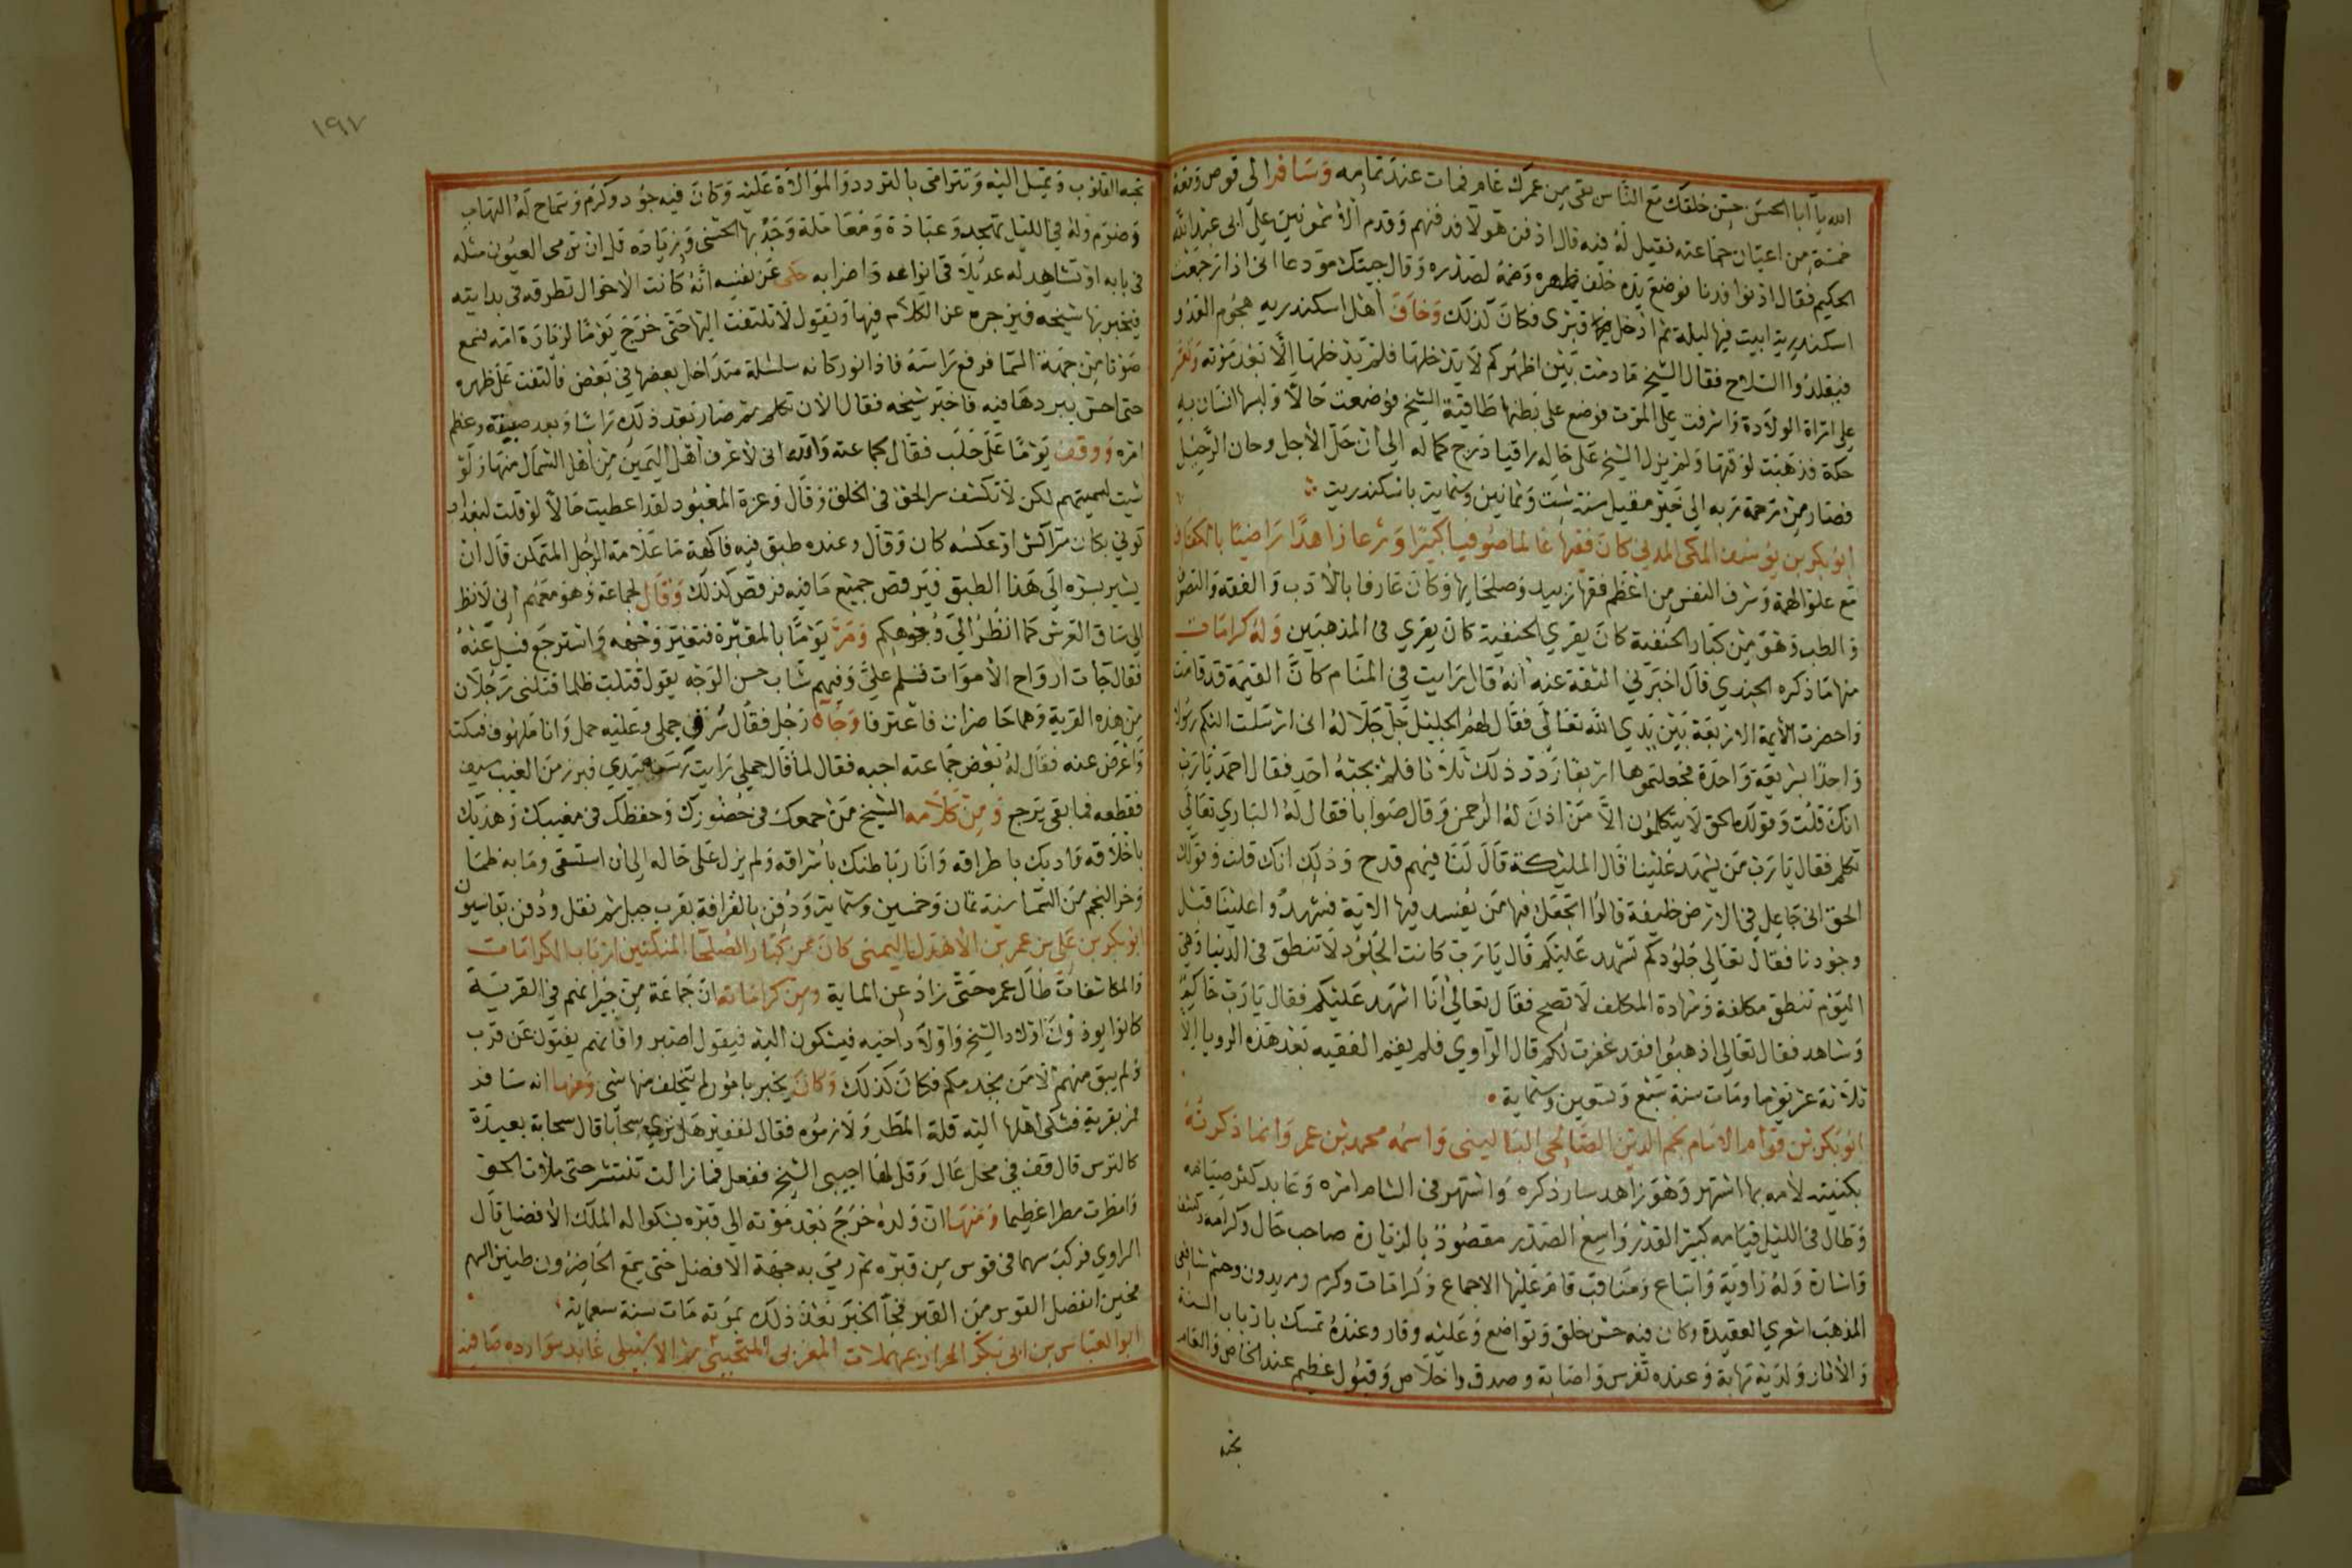 الله يا ابا الحسن حسن خلقك مع الناس بقى من عمرك عام فمات عند تمامه وسافر الى قوص ومعه
خمسة من اعيان جماعته فقيل له فيه قال ادفن هولا فدفنهم وقدم الاشمونين على ابى عبد الله
الحكيم فقال اذنوا فدنا فوضع يده خلف ظهره وضمه لصدره وقال جيتك مودعا انى اذا رجعت
اسكندرية ابيت فيها ليلة ثم ادخل فيها قبرى فكان كذلك وخاف اهل اسكندريه هجوم العدو
فتقلدوا السلاح فقال الشيخ ما دمت بين اظهركم لا يدخلها فلم يدخلها الا بعد موته وتعسر
على امراة الولادة واشرفت على الموت فوضع على بطنها طاقية الشيخ فوضعت حالا ولبسها انسان به
حكة فذهبت لوقتها ولم يزل الشيخ على حاله راقيا درج كماله الى ان حل الاجل وحان الرحيل
فصار من رحمة ربه الى خير مقيل سنة ست وثمانين وستماية باسكندرية
ابو بكر بن يوسف المكى المدنى كان فقيها عالما صوفيا كبيرا ورعا زاهدا راضيا بالكفاف
مع علو الهمة وشرف النفس من اعظم فقها زبيد وصلحايها وكان عارفا بالادب والفقه والتصوف
والطب وهو من كبار الحنفية كان يقري الحنفية كان يقري فى المذهبين وله كرامات
منها ما ذكره الجندي قال اخبرني الثقة عنه انه قال رايت في المنام كان القيمة قد قامت
واحضرت الايمة الاربعة بين يدي الله تعالى فقال لهم الجليل جل جلاله انى ارسلت اليكم رسولا
واحدا بشريعة واحدة فجعلتموها اربعا ردد ذلك ثلاثا فلم يجبه احد فقال احمد يا رب
انك قلت وقولك الحق لا يتكلمون الا من اذن له الرحمن وقال صوابا فقال له الباري تعالى
تكلم فقال يا رب من يشهد علينا قال المليكة قال لنا فيهم قدح وذلك انك قلت وقولك
الحق انى جاعل في الارض خليفة قالوا اتجعل فيها من يفسد فيها الاية فشهدوا علينا قبل
وجودنا فقال تعالى جلودكم تشهد عليكم قال يا رب كانت الجلود لا تنطق فى الدنيا وهى
اليوم تنطق مكلفة وشهادة المكلف لا تصح فقال تعالى انا اشهد عليكم فقال يا رب حاكم
وشاهد فقال تعالى اذهبوا فقد غفرت لكم قال الراوي فلم يقم الفقيه بعد هذه الرويا الا
ثلاثة عشر يوما ومات سنة سبع وتسعين وستماية
ابو بكر بن قوام الامام نجم الدين الصالحى البالسى واسمه محمد بن عمر وانما ذكرته
بكنيته لانه بها اشتهر وهو زاهد سار ذكره واشتهر فى الشام امره وعابد كثر صيامه
وطال فى الليل قيامه كبير القدر واسع الصدر مقصود بالزيارة صاحب حال وكرامة وكشف
واشارة وله زاوية واتباع ومناقب قام عليها الاجماع وكرامات وكرم ومريدون وحشم شافعى
المذهب اشعري العقيدة وكان فيه حسن خلق وتواضع وعليه وقار وعنده تمسك بارباب السنة
والاثار ولديه نهابة وعنده تفرس واصابة وصدق واخلاص وقبول عظيم عند الخاص والعام
تحبه
١٩٧
تحبه القلوب وتميل اليه وتترامى بالتودد والموالاة عليه وكان فيه جود وكرم وسماح له التهاب
وضرم وله في الليل تهجد وعبادة ومعاملة وجد بها الحسنى وزيادة قل ان ترمى العيون مثله
فى بابه او تشاهد له عديلا فى انواعه واضرابه حكى عن نفسه انه كانت الاحوال تطرقه فى بدايته
فيخبر بها شيخه فيزجره عن الكلام فيها ويقول لا تلتفت اليها حتى خرج يوما لزيارة امه فسمع
صوتا من جهة السما فرفع راسه فاذا نور كانه سلسلة متداخل بعضها في بعض فالتفت على ظهره
حتى احس ببردها فيه فاخبر شيخه فقال الان تكلم ثم صار بعد ذلك راسا وبعد صيته وعظم
امره ووقف يوما على حلب فقال لجماعته والله انى لاعرف اهل اليمين من اهل الشمال منها ولو
شيت لسميتهم لكن لا تكشف سر الحق فى الخلق وقال وعزة المعبود لقد اعطيت حالا لو قلت لبغداد
كونى مكان مراكش او عكسه كان وقال وعنده طبق فيه فاكهة ما علامة الرجل المتمكن قال ان
يشير بسره الى هذا الطبق فيرقص جميع ما فيه فرقص كذلك وقال لجماعة وهو معهم انى لانظر
الى ساق العرش كما انظر الى وجوهكم ومر يوما بالمقبرة فتغير وجهه واسترجع فسيل عنه
فقال جات ارواح الاموات فسلم على وفيهم شاب حسن الوجه يقول قتلت ظلما قتلنى رجلان
من هذه القرية وهما حاضران فاعترفا وجاه رجل فقال شرد جملى وعليه حمل وانا ملهوف فسكت
واعرض عنه فقال له بعض جماعته اجبه فقال لما قال جملى رايت رسنه بيدي فبرز من الغيب سيف
فقطعه فما بقى يرجع ومن كلامه الشيخ من جمعك فى حضورك وحفظك فى مغيبك وهذبك
باخلاقه وادبك باطراقه وانار باطنك باشراقه ولم يزل على حاله الى ان استسقى وما به ظما
وخر النجم من السما سنة ثمان وخمسين وستماية ودفن بالقرافة بقرب جبل ثم نقل ودفن بقاسيون
ابو بكر بن على بن عمر بن الاهدل اليمنى كان من كبار الصلحا المتكنين ارباب الكرامات
والمكاشفات طال عمره حتى زاد عن الماية ومن كراماته ان جماعة من جيرانهم في القرية
كانوا يوذون اولاد الشيخ واولاد اخيه فيشكون اليه فيقول اصبر وافانهم يفنون عن قرب
ولم يبق منهم الا من يخدمكم فكان كذلك وكان يخبر بامور لم يتخلف منها شى ومنها انه سافر
فمر بقرية فشكى اهلها اليه قلة المطر ولازموه فقال لفقير هل ترى سحابا قال سحابة بعيدة
كالترس قال قف في محل عال وقل لها اجيبى الشيخ ففعل فما زالت تنتشر حتى ملات الجو
وامطرت مطرا عظيما ومنها ان ولده خرج بعد موته الى قبره يشكوا له الملك الافضل قال
الراوي فركب سهما فى قوس من قبره ثم رمى به جهة الافضل حتى سمع الحاضرون طنين السهم
فحين انفصل القوس من القبر فجا الخبر بعد ذلك بموته مات سنة سبعماية
ابو العباس بن ابى بكر الحرار بمهملات المغربى التجيبى ثم الاشبيلى عابد موارده صافية